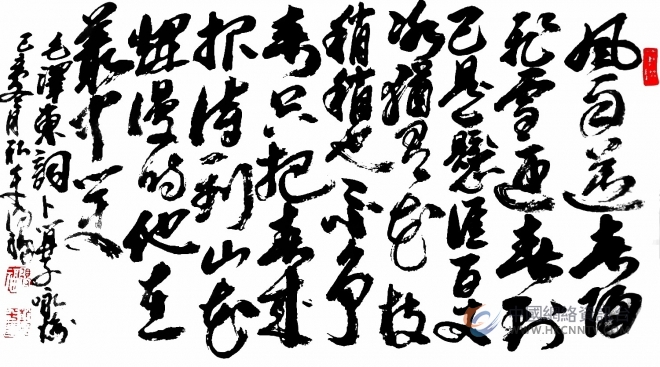 風雨送春歸
飛雪迎春到
已是懸崖百丈
冰猶有花枝
俏俏也不爭
春只把春來
报待到山花
爛漫时他在
叢中笑
毛澤東詞卜算子詠梅
己亥冬月
中國網絡資